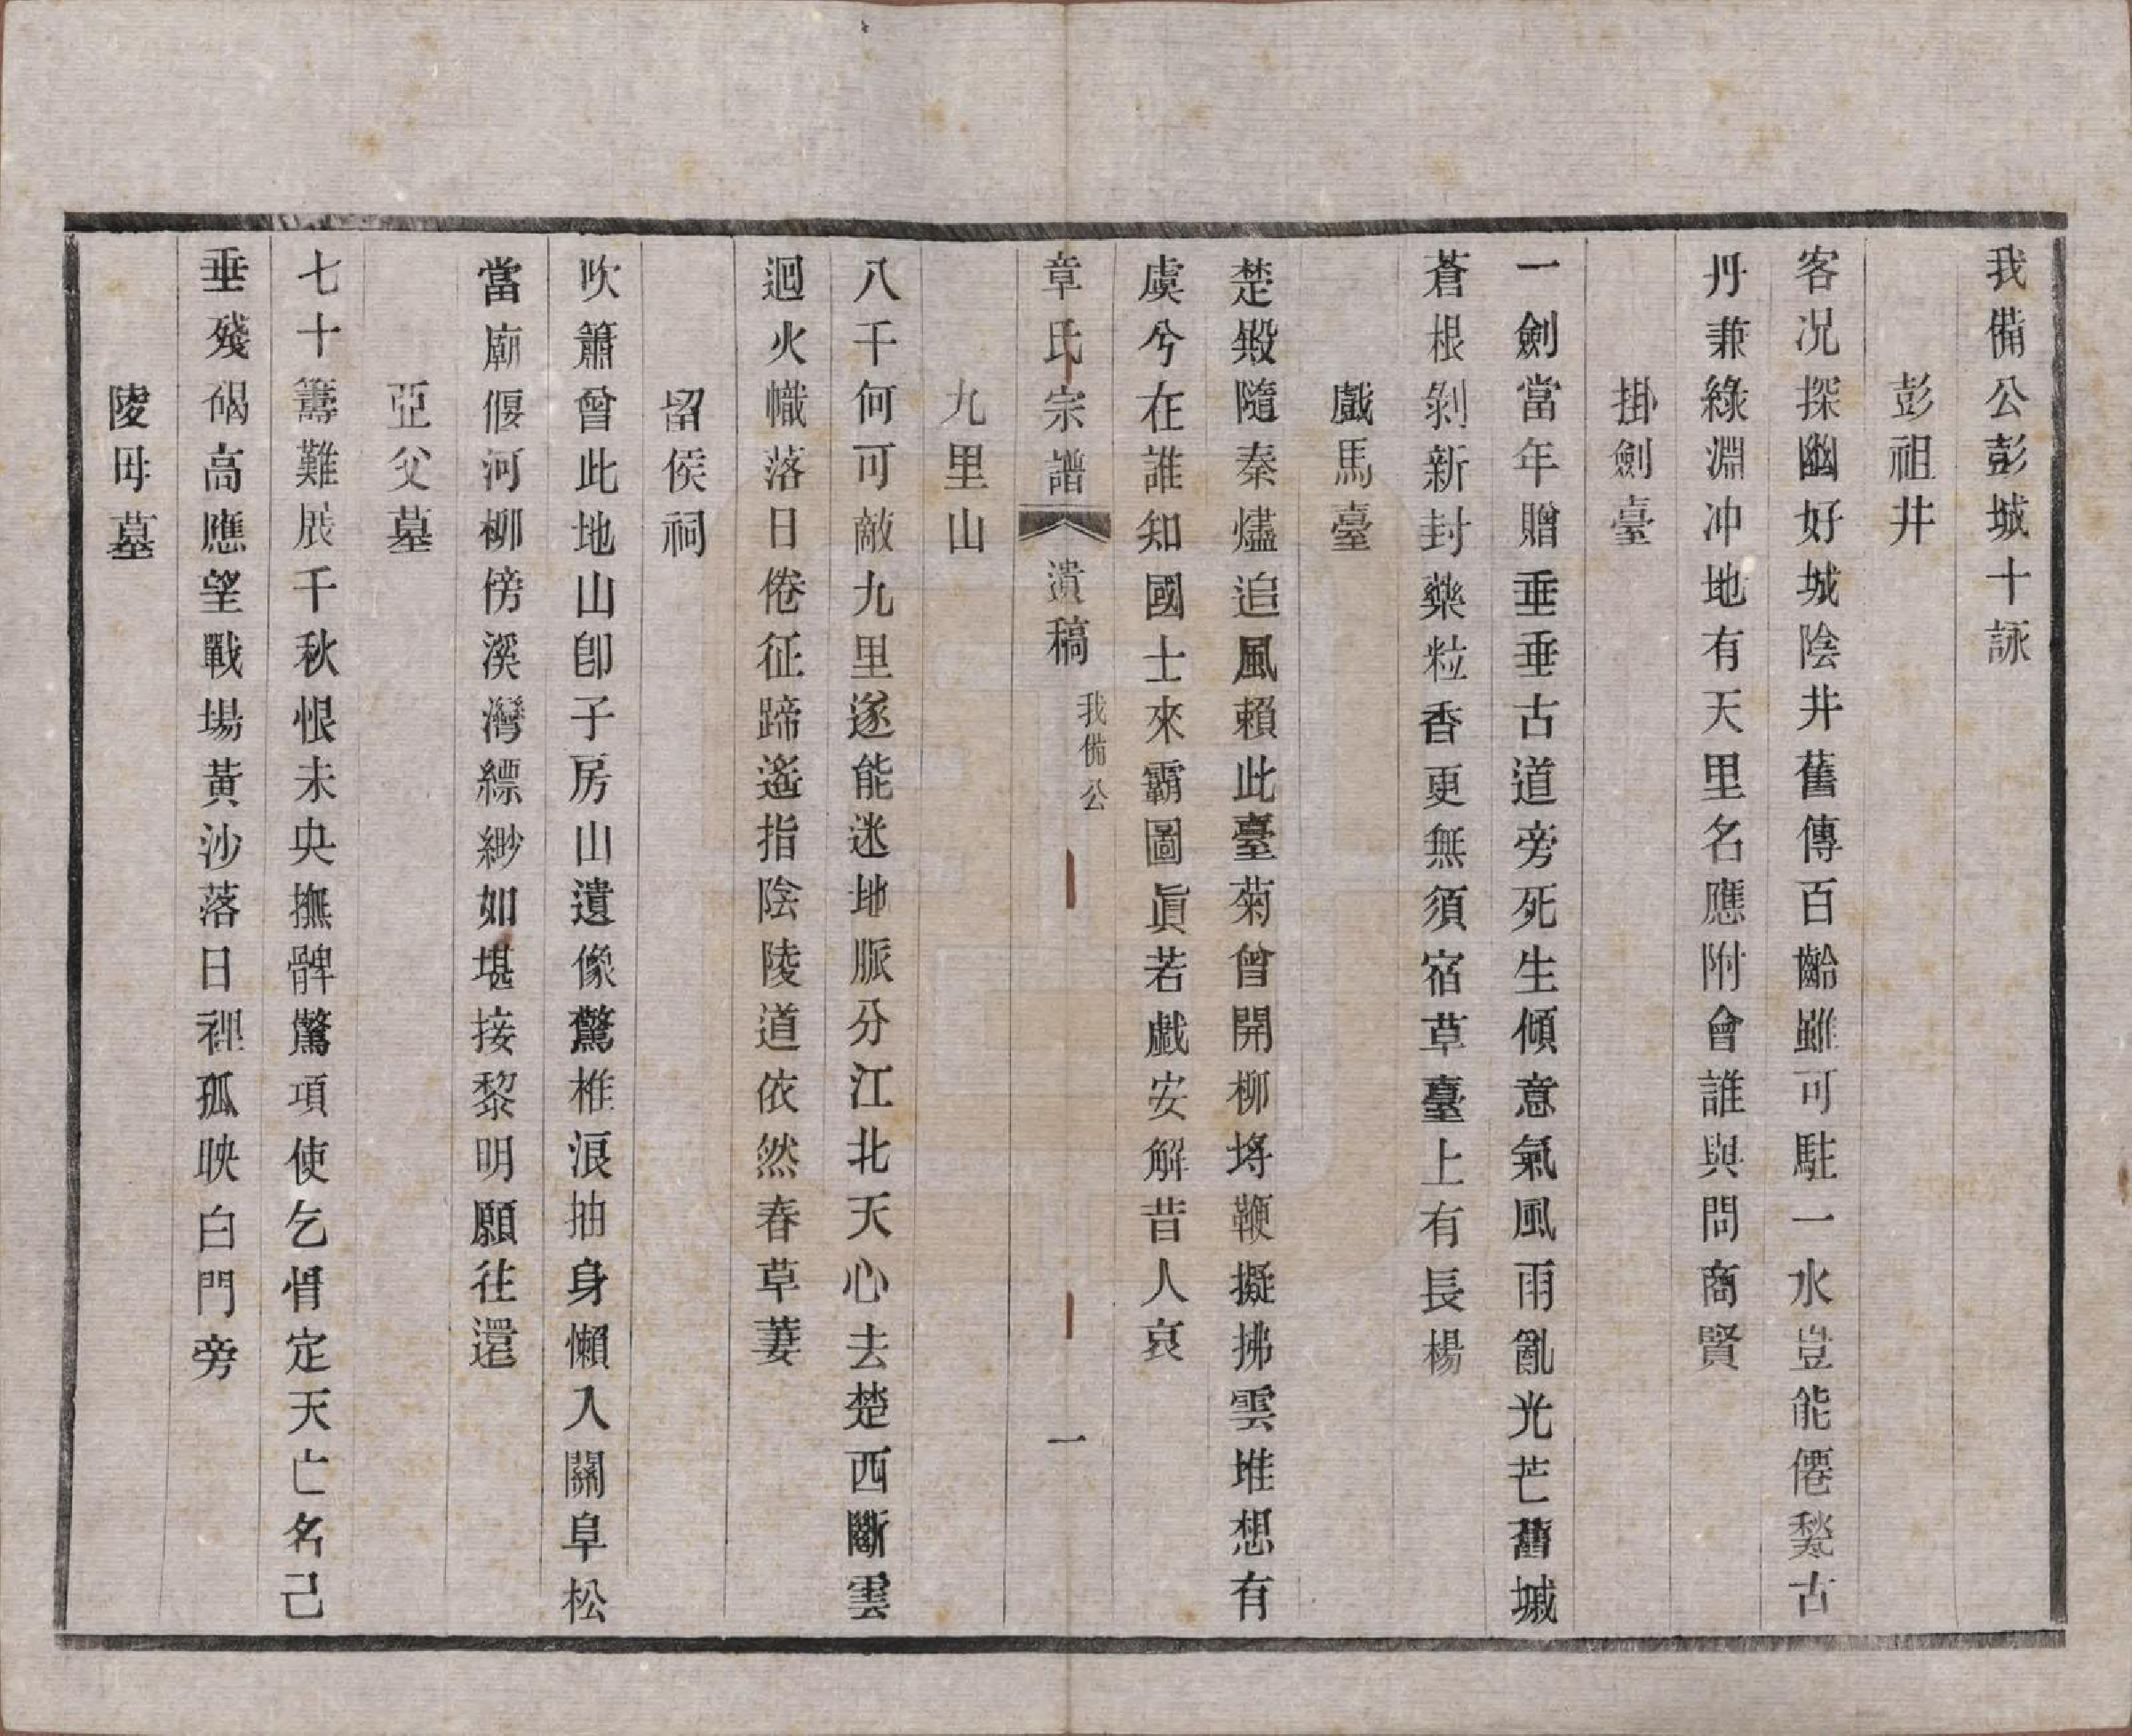 我備公彭城十詠
彭祖井
客况探幽好城陰井舊傳百齡雖可駐一水豈能僊甃古
丹兼綠淵冲地有天里名應附會誰與問商賢
掛劍臺
一劍當年贈垂垂古道旁死生傾意氣風雨亂光芒舊城
蒼根剝新封藥粒香更無須宿草臺上有長楊
戲馬臺
楚毀隨秦燼追風賴此臺菊曾開柳埓鞭擬拂雲堆想有
虞兮在誰知國士來霸圖眞若戲安解昔人哀
章氏宗譜 遺稿 我備公 一
九里山
八千何可敵九里遂能迷地脈分江北天心去楚西斷雲
迴火幟落日倦征蹄遙指陰陵道依然春草萋
留侯祠
吹簫曾此地山卽子房山遺像驚椎浪抽身懶入關阜松
當廟偃河柳傍溪灣縹緲如堪接黎明願往還
亞父墓
七十籌難展千秋恨未央撫髀驚項使乞骨定天亡名己
垂殘碣高應望戰場黃沙落日裡孤映白門旁
陵母墓